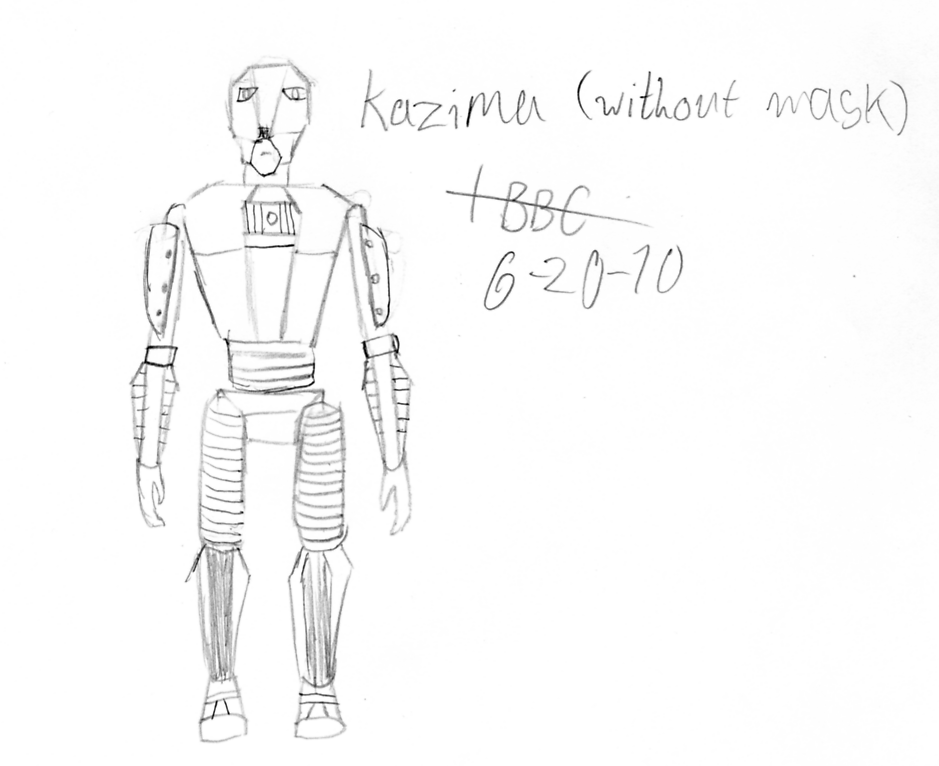 Kazima (without mask)
BBC
6-20-10